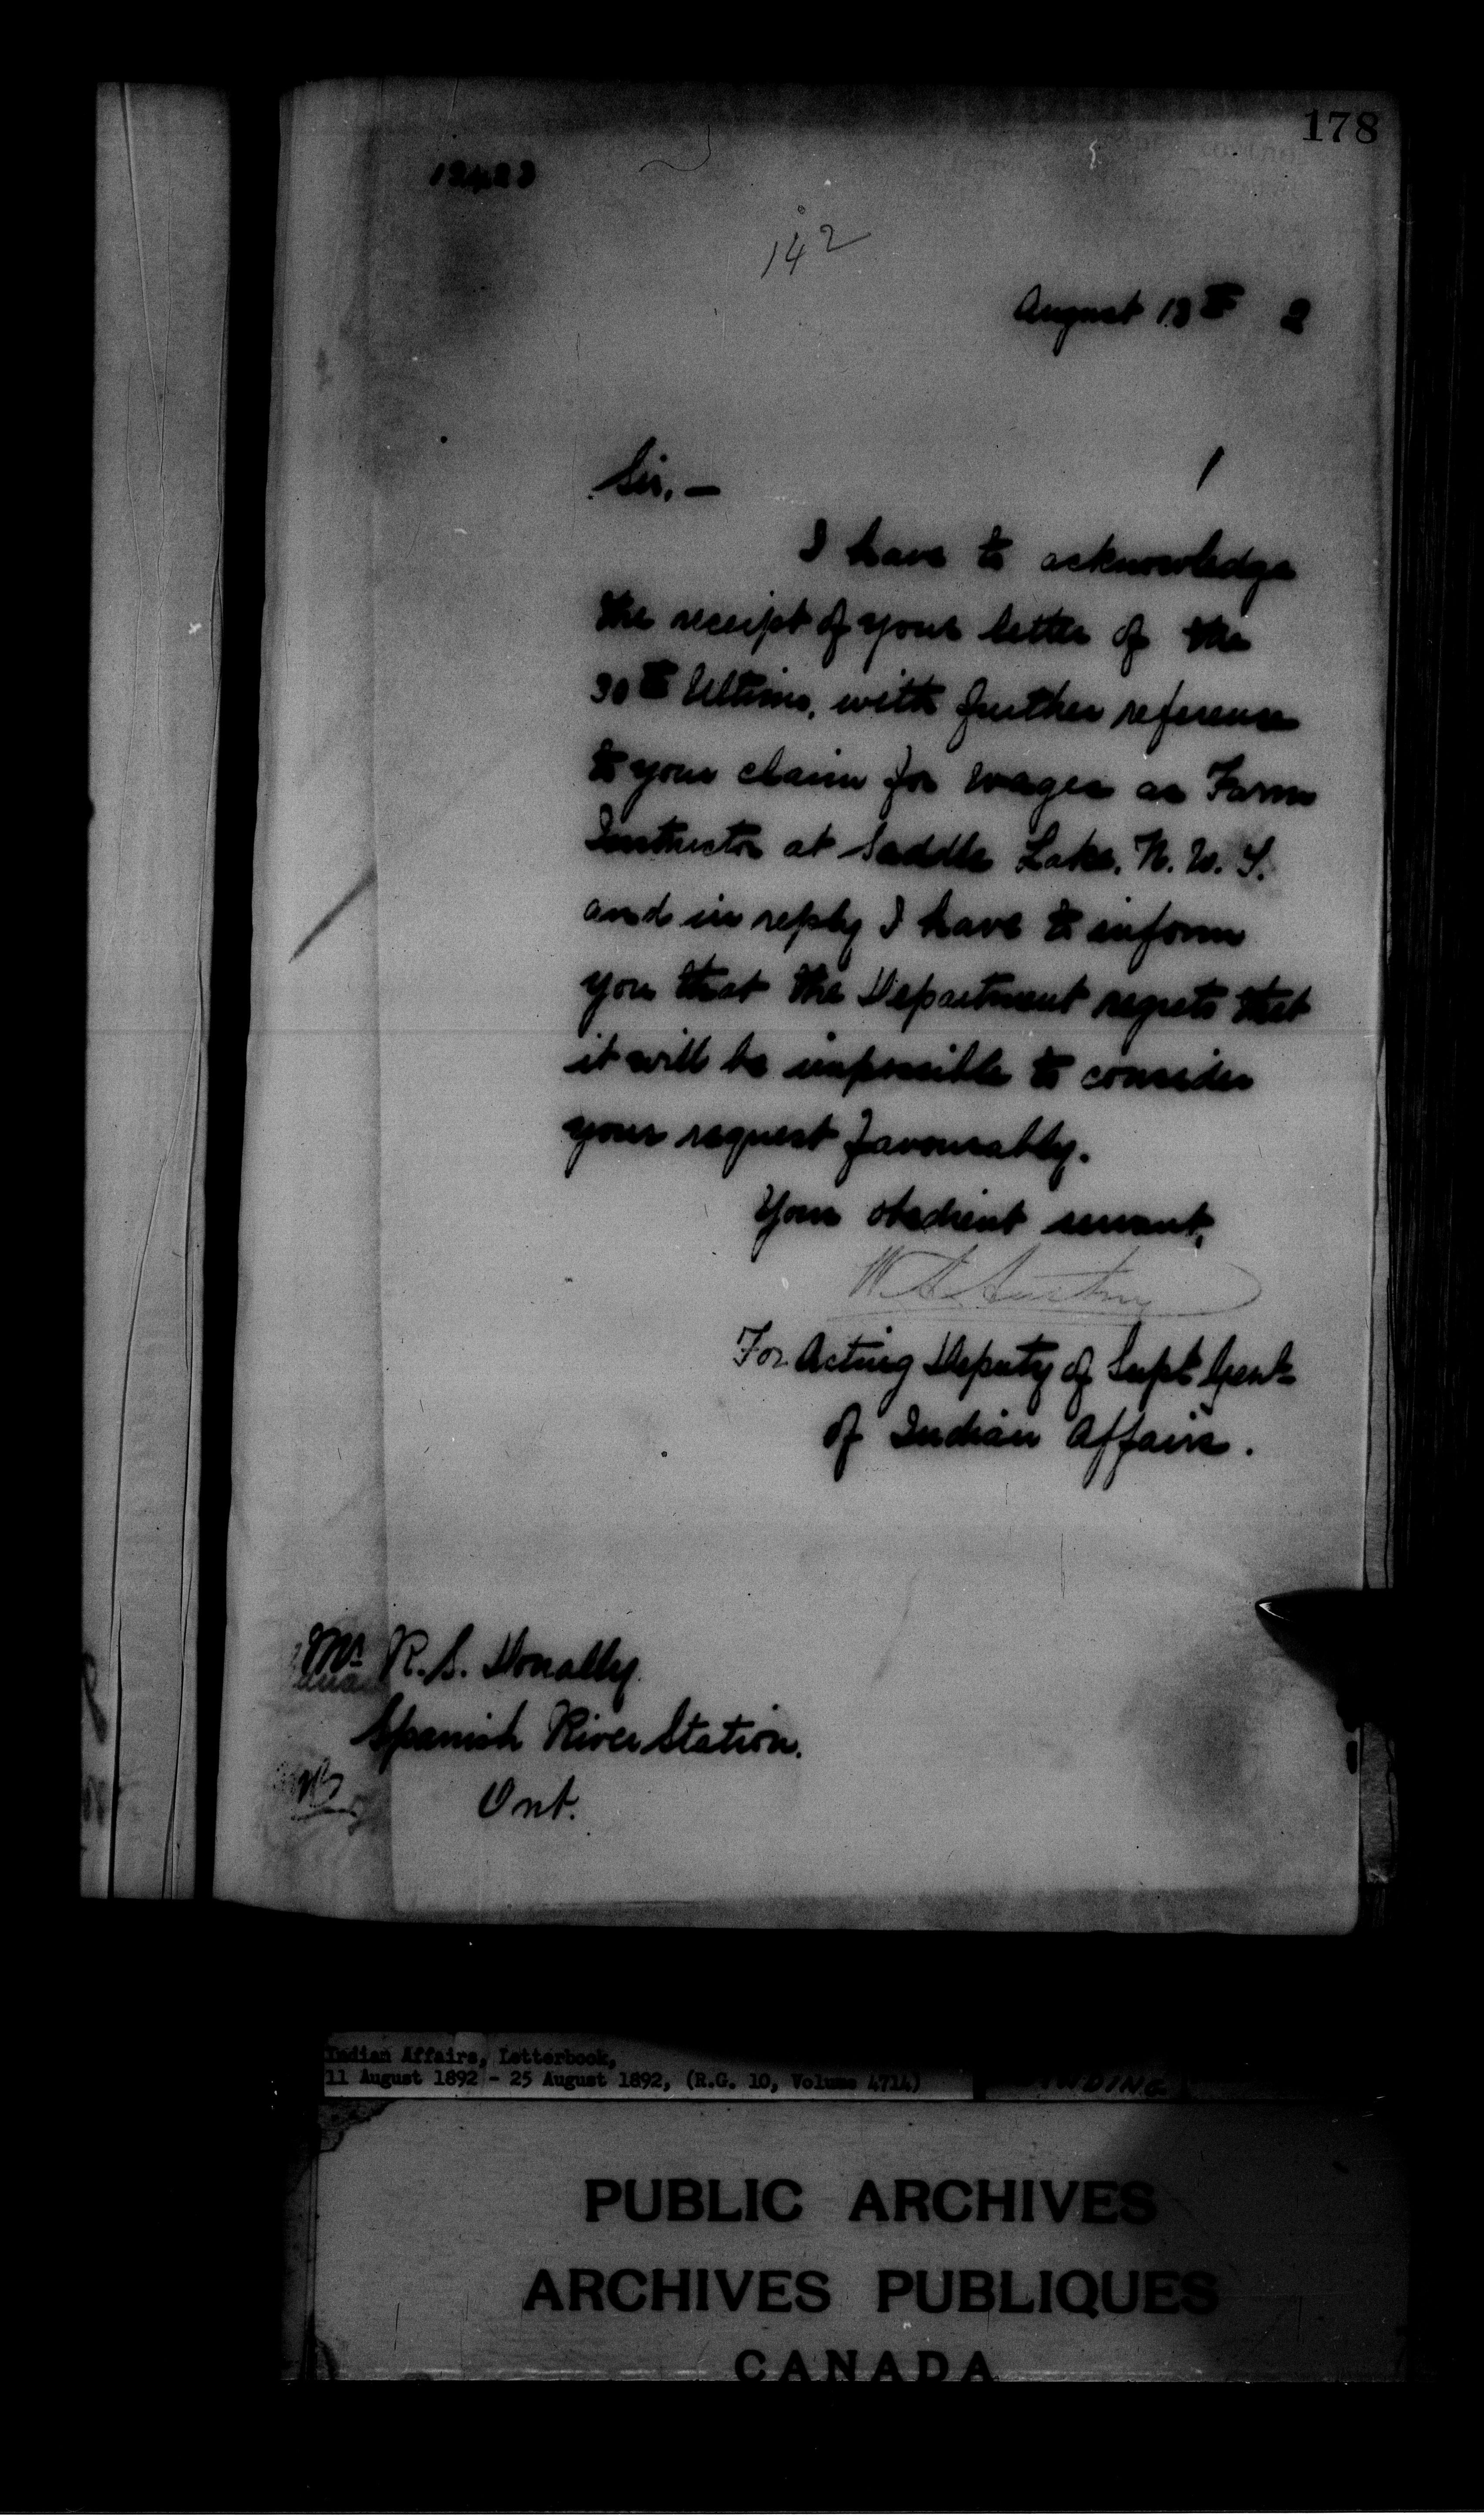 178
12423
142
August 13th 2
Sir, —
I have to acknowledge
the receipt of your letter of the
30th Ultimo, with further reference
to your claim for wages as Farm
Instructor at Saddle Lake, N. W. T.
and in reply I have to inform
you that the Department regrets that
it will be impossible to consider
your request favourably.
Your obedient servant,
W. A. Austin
For Acting Deputy of Supt Genl
of Indian Affairs.
Mr R. S. Donally
Spanish River Station.
Ont.
Indian Affairs, Letterbook,
11 August 1892 - 25 August 1892, (R.G. 10, Volume 4714)
PUBLIC ARCHIVES
ARCHIVES PUBLIQUES
CANADA